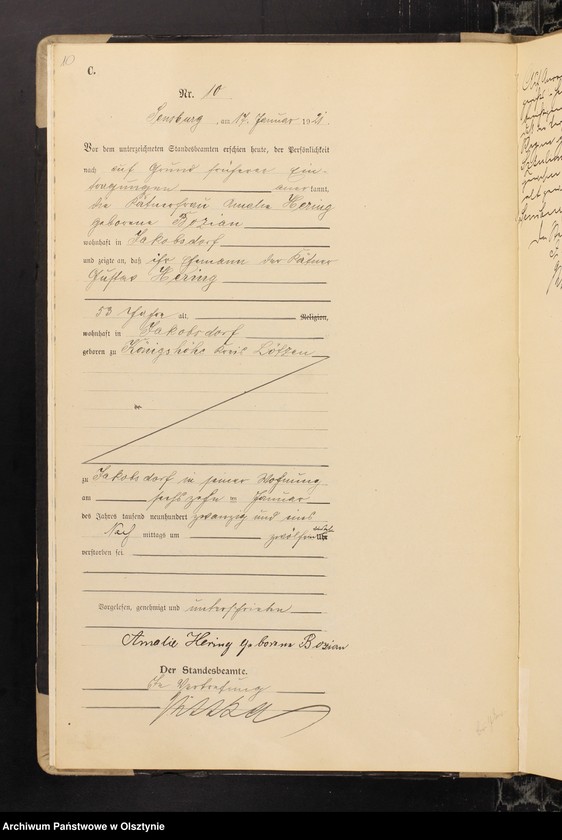 10
C.
Nr. 10
Sensburg, am 17. Januar 1921.
Vor dem unterzeichneten Standesbeamten erschien heute, der Persönlichkeit
nach auf Grund früherer Ein-
tragungen anerkannt,
die Kätnerfrau Amalie Hering
geborene Bozian
wohnhaft in Jakobsdorf
und zeigte an, daß ihr Ehemann der Kätner
Gustav Hering
53 Jahre alt, Religion,
wohnhaft in Jakobsdorf
geboren zu Königshöhe Kreis Lötzen
zu Jakobsdorf in seiner Wohnung
am sechszehn ten Januar
des Jahres tausend neunhundert zwanzig und eins
Nach mittags um zwölf Uhr
verstorben sei.
Vorgelesen, genehmigt und unterschrieben
Amalie Hering geborene Bozian
Der Standesbeamte.
In Vertretung
Archiwum Państwowe w Olsztynie